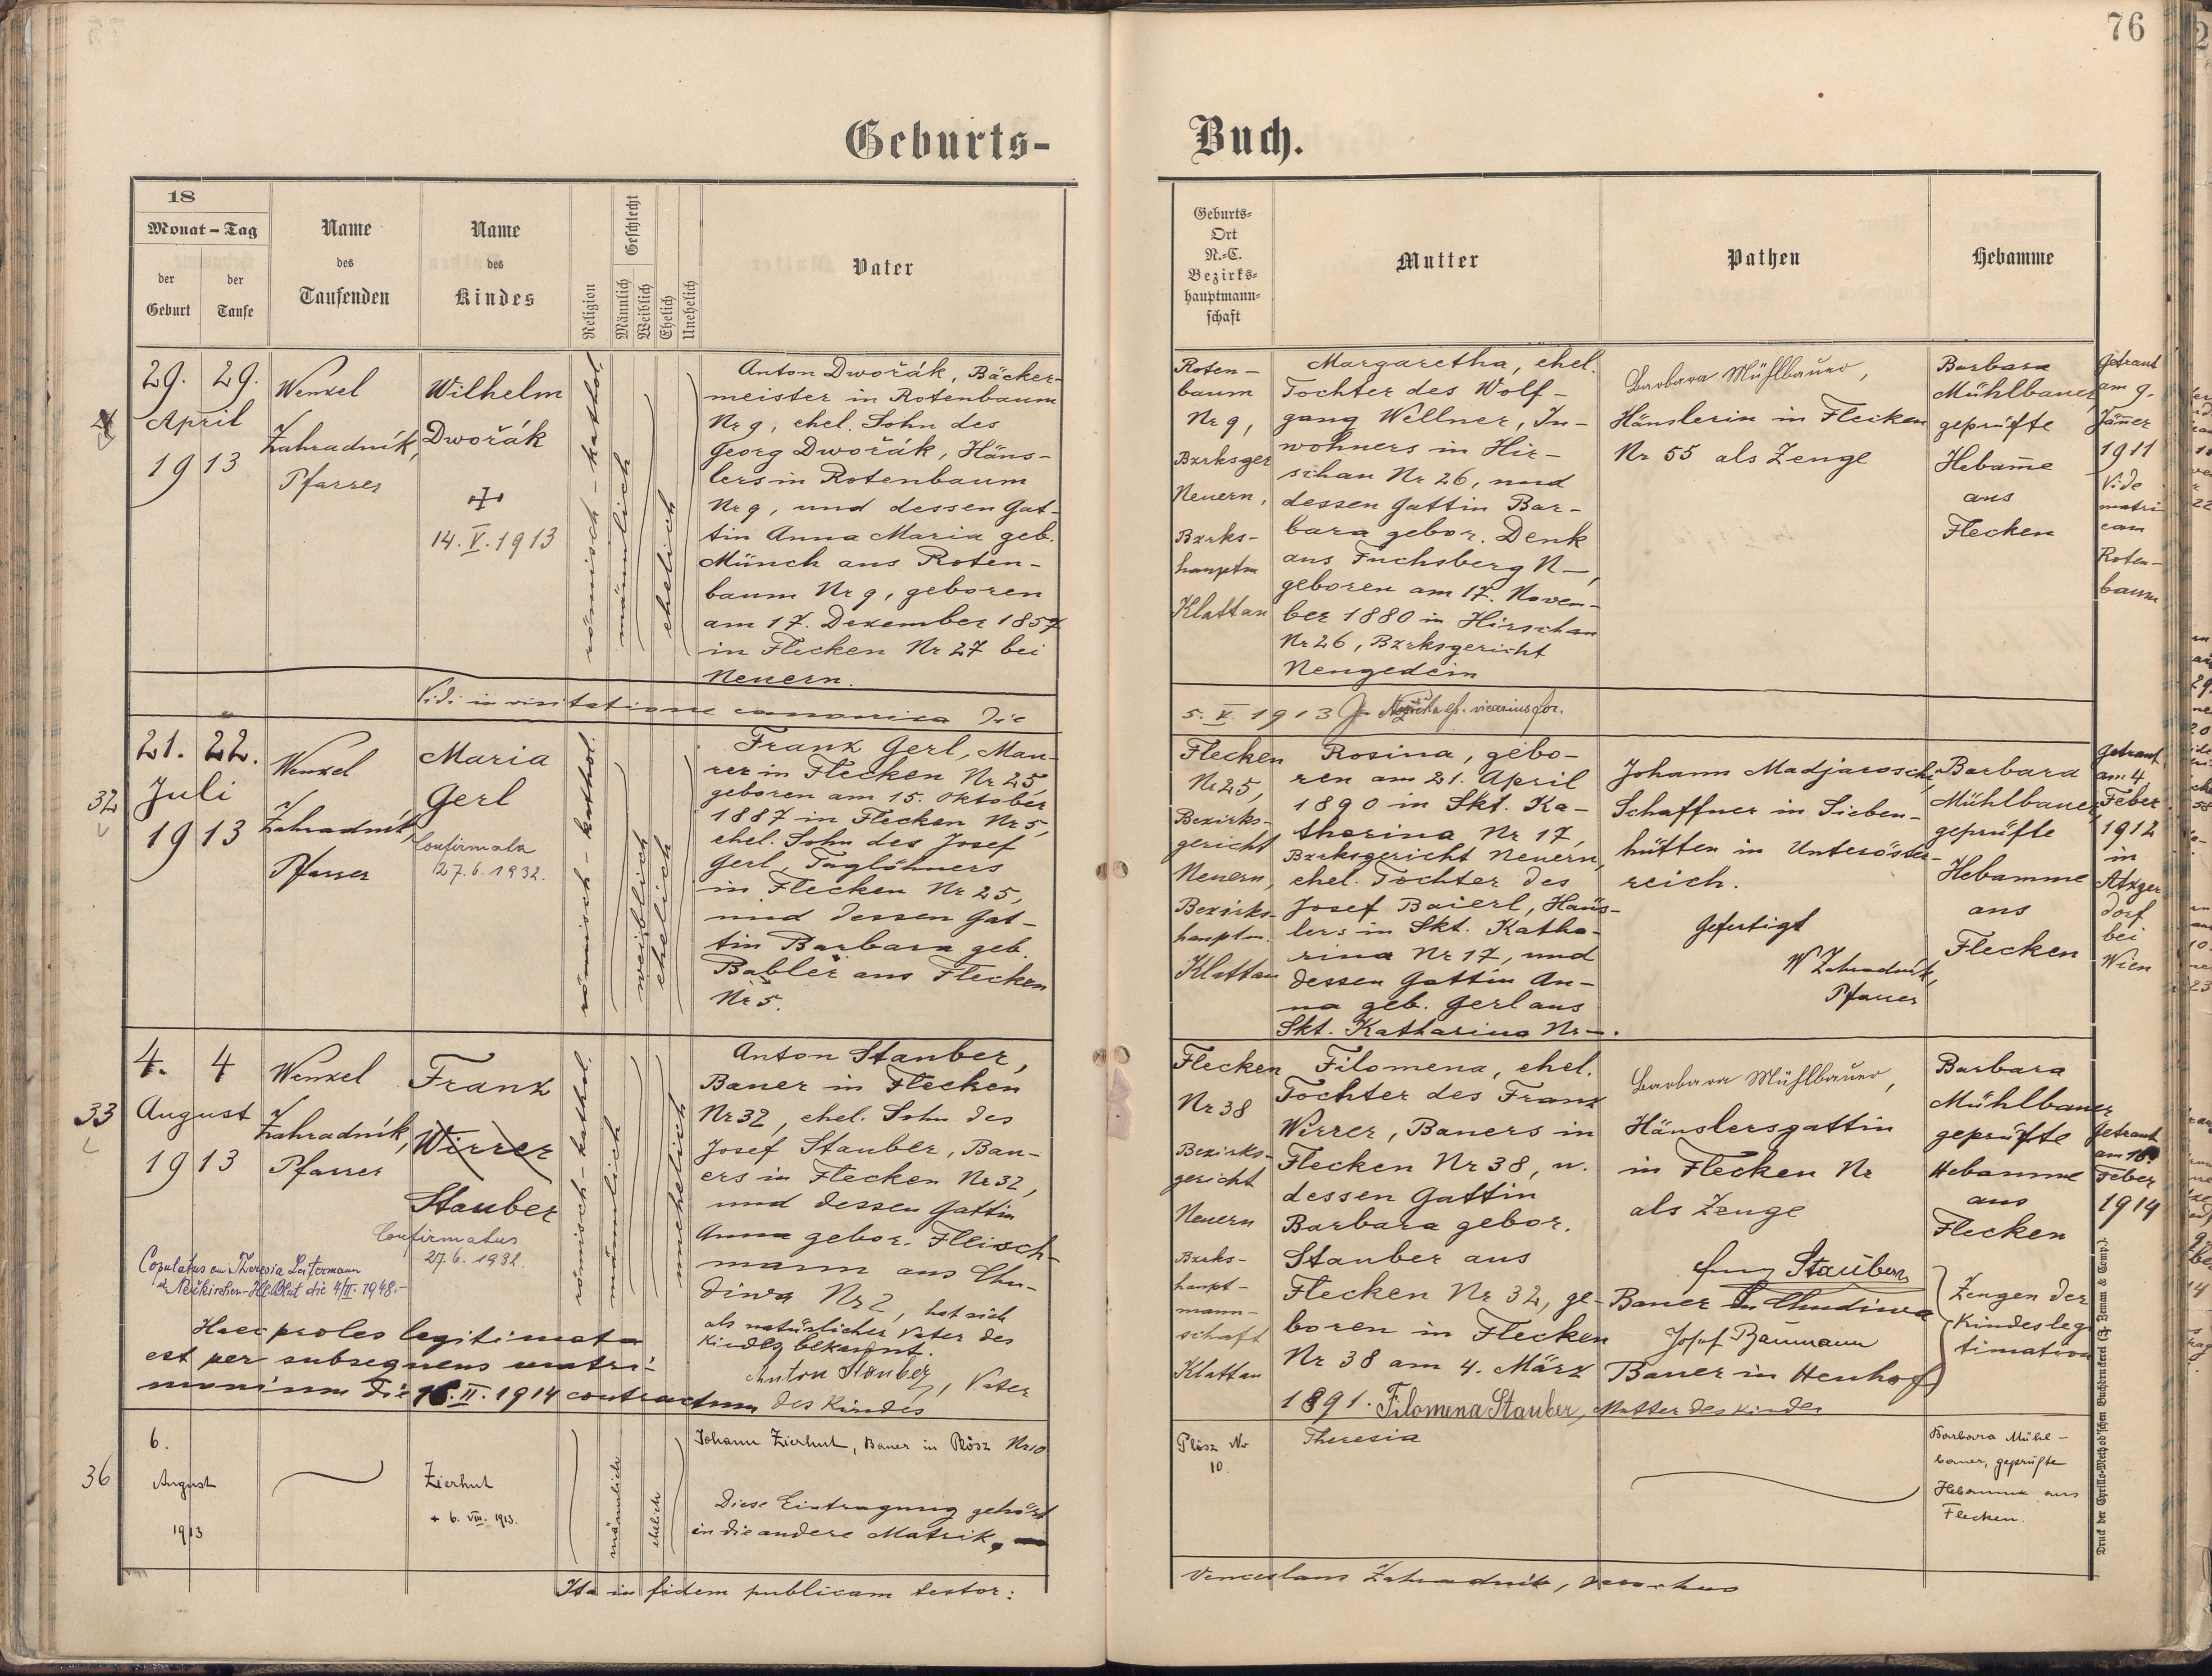 76
Geburts-Buch.
18
Monat - Tag
der Geburt
der Taufe
Name des Taufenden
Name des Kindes
Religion
Geschlecht
Männlich
Weiblich
Ehelich
Unehelich
Vater
Geburts-
Ort
N.-C.
Bezirks-
hauptmann-
schaft
Mutter
Pathen
Hebamme
29. 29.
April
1913
Wenzel
Zahradník,
Pfarrer
Wilhelm
Dwořák
14. V. 1913
römisch-kathol.
männlich
ehelich
Anton Dwořák, Bäcker-
meister in Rotenbaum
Nr 9, ehel. Sohn des
Georg Dwořák, Häus-
lers in Rotenbaum
Nr 9, und dessen Gat-
tin Anna Maria geb.
Münch aus Roten-
baum Nr 9, geboren
am 17. Dezember 1857
in Flecken Nr 27 bei
Neuern.
Roten-
baum
Nr 9,
Bzrksger
Neuern,
Bzrks-
hauptm
Klattau
Margaretha, ehel.
Tochter des Wolf-
gang Wellner, In-
wohners in Hir-
schau Nr 26, und
dessen Gattin Bar-
bara gebor. Denk
aus Fuchsberg N—,
geboren am 17. Novem-
ber 1880 in Hirschau
Nr 26, Bzrksgericht
Neugedein
Barbara Mühlbauer,
Häuslerin in Flecken
Nr 55 als Zeuge
Barbara
Mühlbauer,
geprüfte
Hebam̄e
aus
Flecken
Getraut
am 9.
Jän̄er
1911
Vide
matri
cam
Roten-
baum
Vidi in visitatione canonica die
5. V. 1913 vicarius for.
32
21. 22.
Juli
1913
Wenzel
Zahradník,
Pfarrer
Maria
Gerl
Confirmata
27.6.1932.
römisch-kathol.
weiblich
ehelich
Franz Gerl, Mau-
rer in Flecken Nr 25,
geboren am 15. Oktober
1887 in Flecken Nr 5,
ehel. Sohn des Josef
Gerl, Taglöhners
in Flecken Nr 25,
und dessen Gat-
tin Barbara geb.
Babler aus Flecken
Nr 5.
Flecken
Nr 25,
Bezirks-
gericht
Neuern,
Bezirks-
hauptm.
Klattau
Rosina, gebo-
ren am 21. April
1890 in Skt. Ka-
tharina Nr 17,
Bzrksgericht Neuern,
ehel. Tochter des
Josef Baierl, Häus-
lers in Skt. Katha-
rina Nr 17, und
dessen Gattin An-
na geb. Gerl aus
Skt. Katharina Nr —.
Johann Madjarosch,
Schaffner in Sieben-
hütten in Unteröster-
reich.
Gefertigt
W Zahradník,
Pfarrer
Barbara
Mühlbauer,
geprüfte
Hebamme
aus
Flecken
Getraut
am 4.
Feber
1912
in
Atzger
dorf
bei
Wien
33
4. 4
August
1913
Wenzel
Zahradník,
Pfarrer
Franz
Wirrer
Stauber
Confirmatus
27.6.1932.
Copulatus cum Theresia Leitermann
Neukirchen-Hl.Blut die 4/II. 1948.-
Haec proles legitimata
est per subsequens matri-
monium die 16. II. 1914 contractum
römisch-kathol.
männlich
unehelich
Anton Stauber,
Bauer in Flecken
Nr 32, ehel. Sohn des
Josef Stauber, Bau-
ers in Flecken Nr 32,
und dessen Gattin
Anna gebor. Fleisch-
mann aus Chu-
diwa Nr 2, hat sich
als natürlicher Vater des
Kindes bekannt.
Anton Stauber, Vater
des Kindes
Flecken
Nr 38
Bezirks-
gericht
Neuern
Bzrks-
haupt-
mann-
schaft
Klattau
Filomena, ehel.
Tochter des Franz
Wirrer, Bauers in
Flecken Nr 38, u.
dessen Gattin
Barbara gebor.
Stauber aus
Flecken Nr 32, ge-
boren in Flecken
Nr 38 am 4. März
1891. Filomena Stauber, Mutter des Kindes
Barbara Mühlbauer,
Häuslersgattin
in Flecken Nr
als Zeuge
Stauber
Bauer in Chudiwa
Josef Baumann
Bauer in Heuhof
Zeugen der
Kindeslegi
timation
Barbara
Mühlbauer
geprüfte
Hebamme
aus
Flecken
Getraut
am 16.
Feber
1914
36
6.
August
1913
Zierhut
+ 6. VIII. 1913.
männlich
ehelich
Johann Zierhut, Bauer in Plösz Nr 10
Diese Eintragung gehört
in die andere Matrik.
Plösz Nr
10.
Theresia
Barbara Mühl-
bauer, geprüfte
Hebamme aus
Flecken.
Ita in fidem publicam testor:
Venceslaus Zahradník, parochus
Druck der Cyrillo-Method'schen Buchdruckerei (J. Zeman & Comp.).